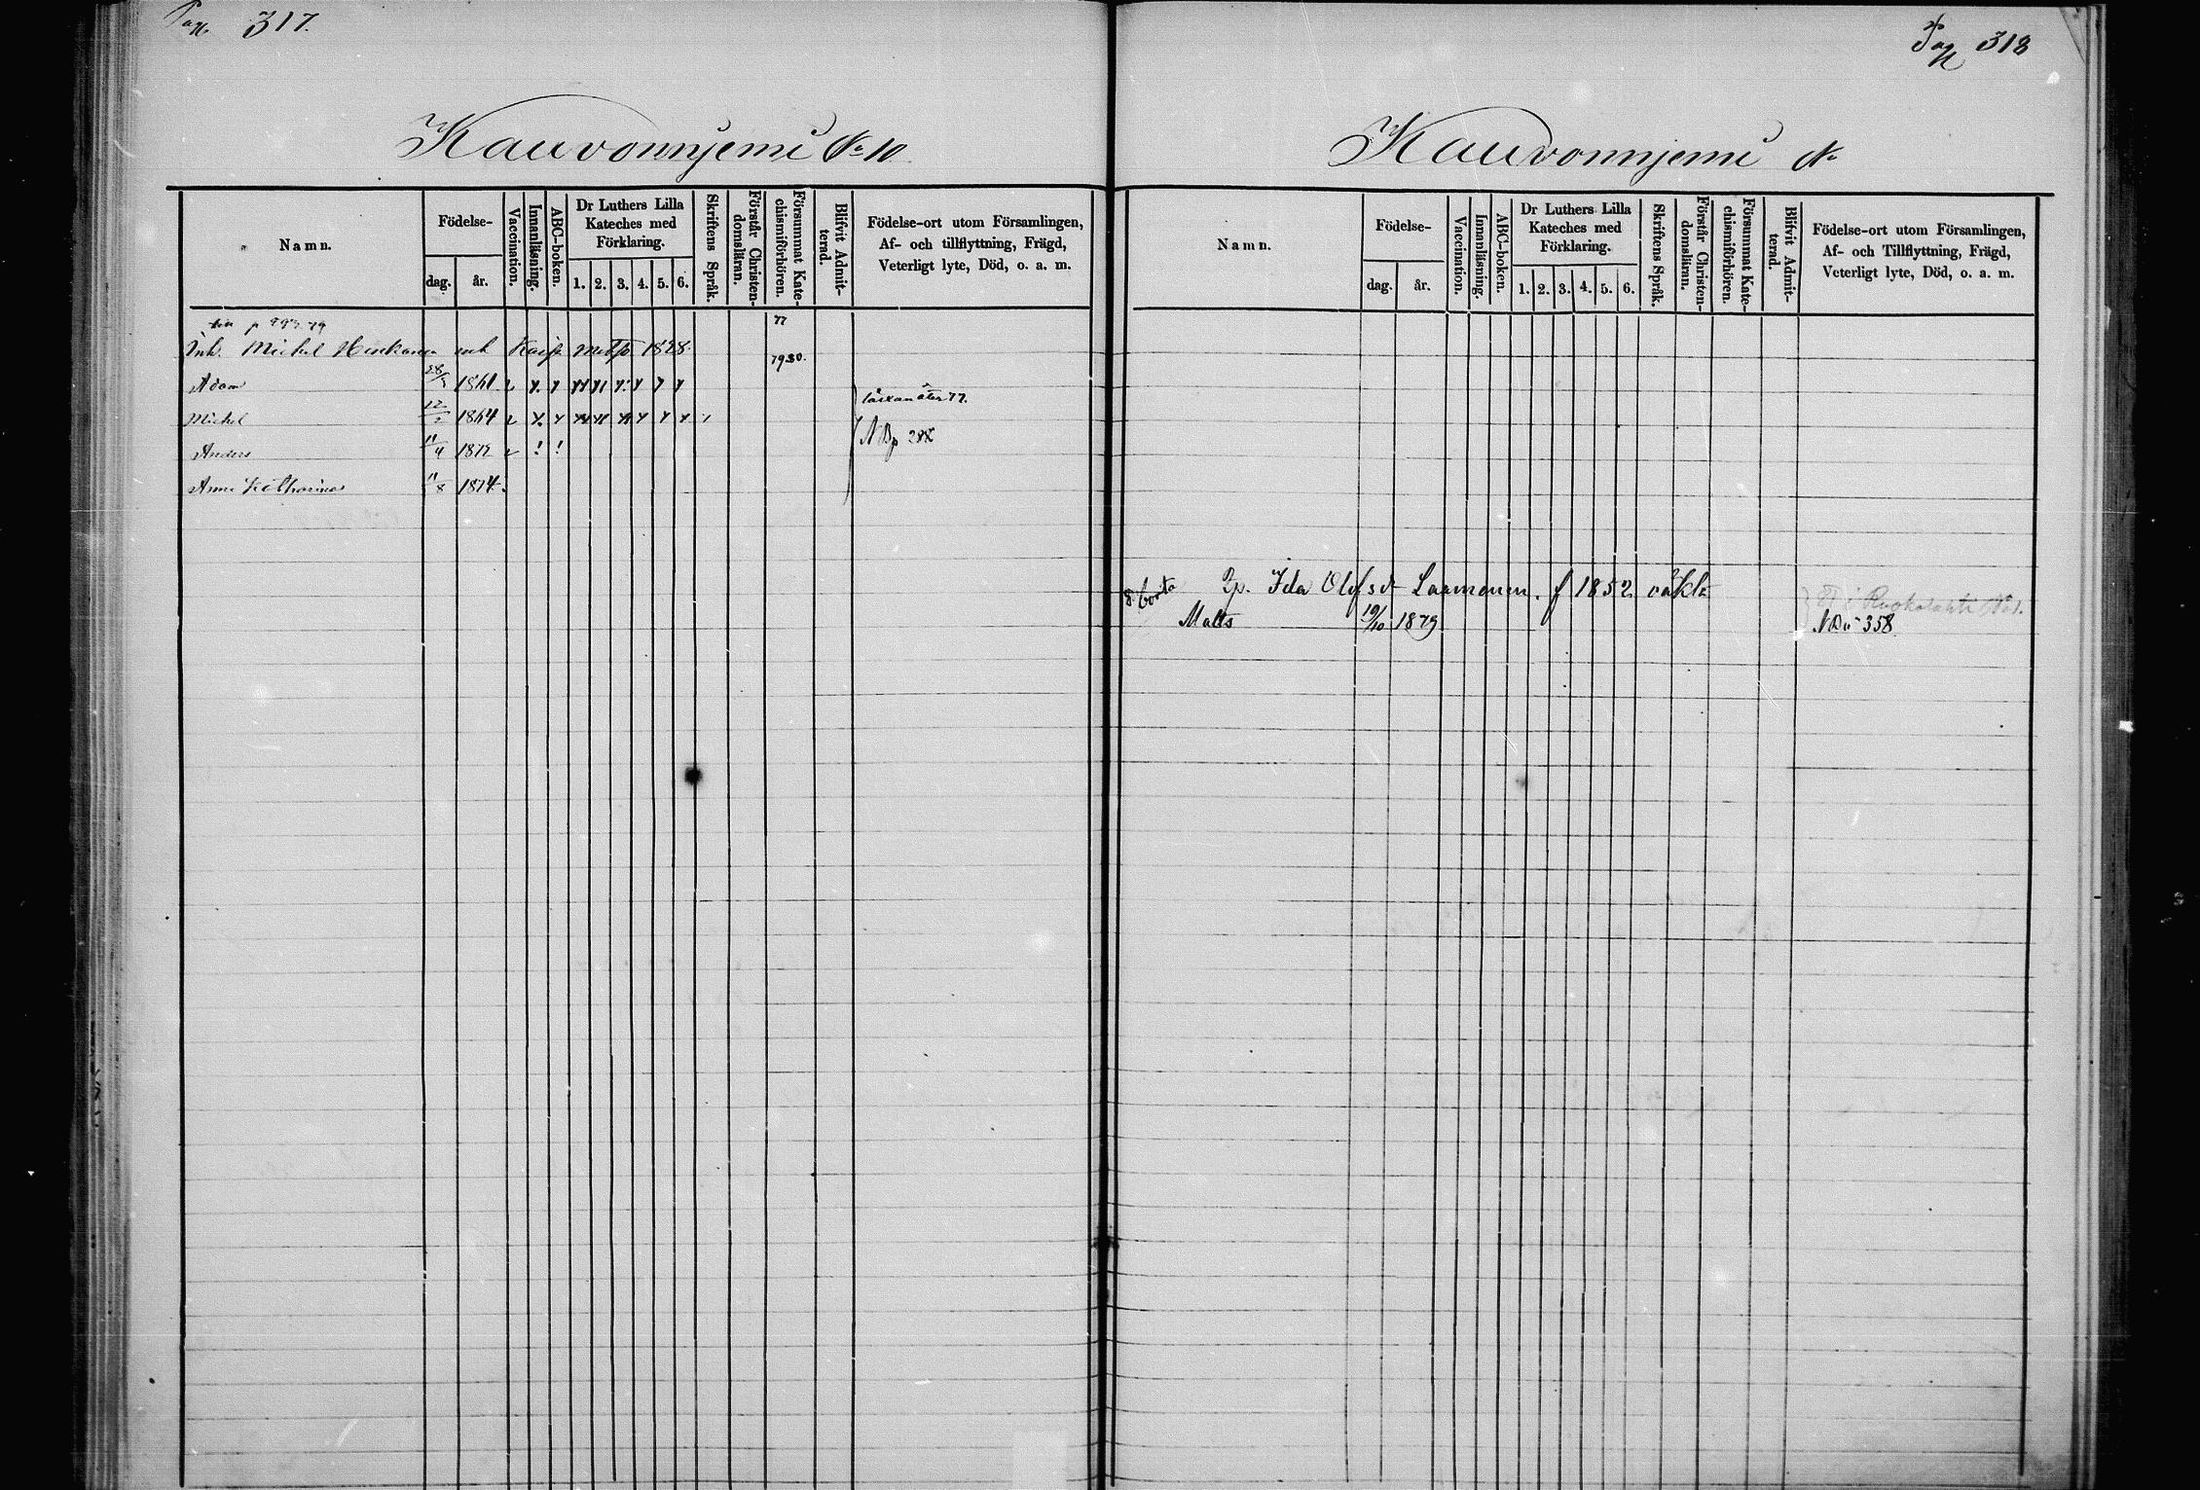 Pag 317.
Kauvonnjemi No 10
Namn.
Födelse-
dag.
år.
Vaccination.
Innanläsning.
ABC-boken.
Dr Luthers Lilla
Kateches med
Förklaring.
1. 2. 3. 4. 5. 6.
Skriftens Språk.
Förstår Christen-
domsläran.
Försummat Kate-
chismiförhören.
Blifvit Admit-
terad.
Födelse-ort utom Församlingen,
Af- och tillflyttning, Frägd,
Veterligt lyte, Död, o. a. m.
77
Inh. Michel 1828. 7980.
Adam 1861
Michel 12 1864
Anders 11/4 1872 ! !
Anna Katharina 11/8 1874
77.
N B p
Pag 318
Kauvonnjemi No
Namn.
Födelse-
dag.
år.
Vaccination.
Innanläsning.
ABC-boken.
Dr Luthers Lilla
Kateches med
Förklaring.
1. 2. 3. 4. 5. 6.
Skriftens Språk.
Förstår Christen-
domsläran.
Försummat Kate-
chismiförhören.
Blifvit Admit-
terad.
Födelse-ort utom Församlingen,
Af- och Tillflyttning, Frägd,
Veterligt lyte, Död, o. a. m.
borta Ida Olofsdr f 1852 oäkta
i Ruokolahti
Matts 19/10 1879 358